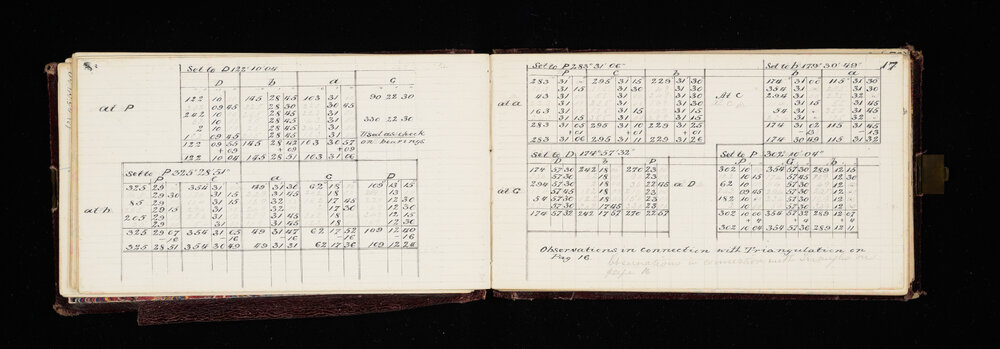 Set to D 122° 10' 04"
D h a C
at P
122 10 - 145 28 45 103 31 - 90 22 30
09 45 28 30 30 45
242 10 - 28 45 31 - 330 22 30
10 - 28 45 31 -
2 10 - 28 45 31 -
1 09 45 28 45 31 - Used as check
122 09 55 145 28 42 103 30 57 on bearings
+09 +09 +09
122 10 04 145 28 51 103 31 06
Set to P 325° 28' 51"
P C a G D
at h
325 29 - 354 31 - 49 31 30 62 18 - 109 13 15
29 30 31 15 31 45 18 - 13 -
85 29 - 31 15 32 - 17 45 12 30
29 15 31 - 32 - 17 30 12 30
205 29 - 31 - 31 45 18 - 12 15
29 - 31 - 31 45 18 - 12 30
325 29 07 354 31 05 49 31 47 62 17 52 109 12 40
-16 -16 -16 -16 -16
325 28 51 354 30 49 49 31 31 62 17 36 109 12 24
17
Set to P 283° 31' 06"
P C h
at a
283 31 - 295 31 15 229 31 30
31 15 31 30 31 30
43 31 - 31 - 31 30
31 - 31 - 31 30
163 31 - 31 - 31 15
31 15 31 - 31 15
283 31 05 295 31 10 229 31 25
+01 +01 +01
283 31 06 295 31 11 229 31 26
Set to h 179° 30' 49"
h a
At C
174 31 - 115 31 30
294 31 - 31 -
31 15 31 45
54 31 - 31 45
31 - 32 -
174 31 02 115 31 45
-13 -13
174 30 49 115 31 32
Set to D 174° 57' 32"
D h P
at G
174 57 30 242 18 - 270 23 -
57 45 18 - 23 -
294 57 30 18 - 22 45
57 30 18 - 23 -
54 57 30 18 - 23 -
57 30 17 45 23 -
174 57 32 242 17 57 270 22 57
Set to P 302° 10' 04"
P G h
at D
302 10 - 354 57 30 289 12 15
10 - 57 45 12 30
62 10 - 57 30 12 -
09 45 57 30 12 -
182 10 - 57 30 12 -
10 - 57 30 12 -
302 10 00 354 57 32 289 12 07
+4 +4 +4
302 10 04 354 57 36 289 12 11
Observations in connection with Triangulation on
Pag 16
Observations in connection with Triangln on
page 16